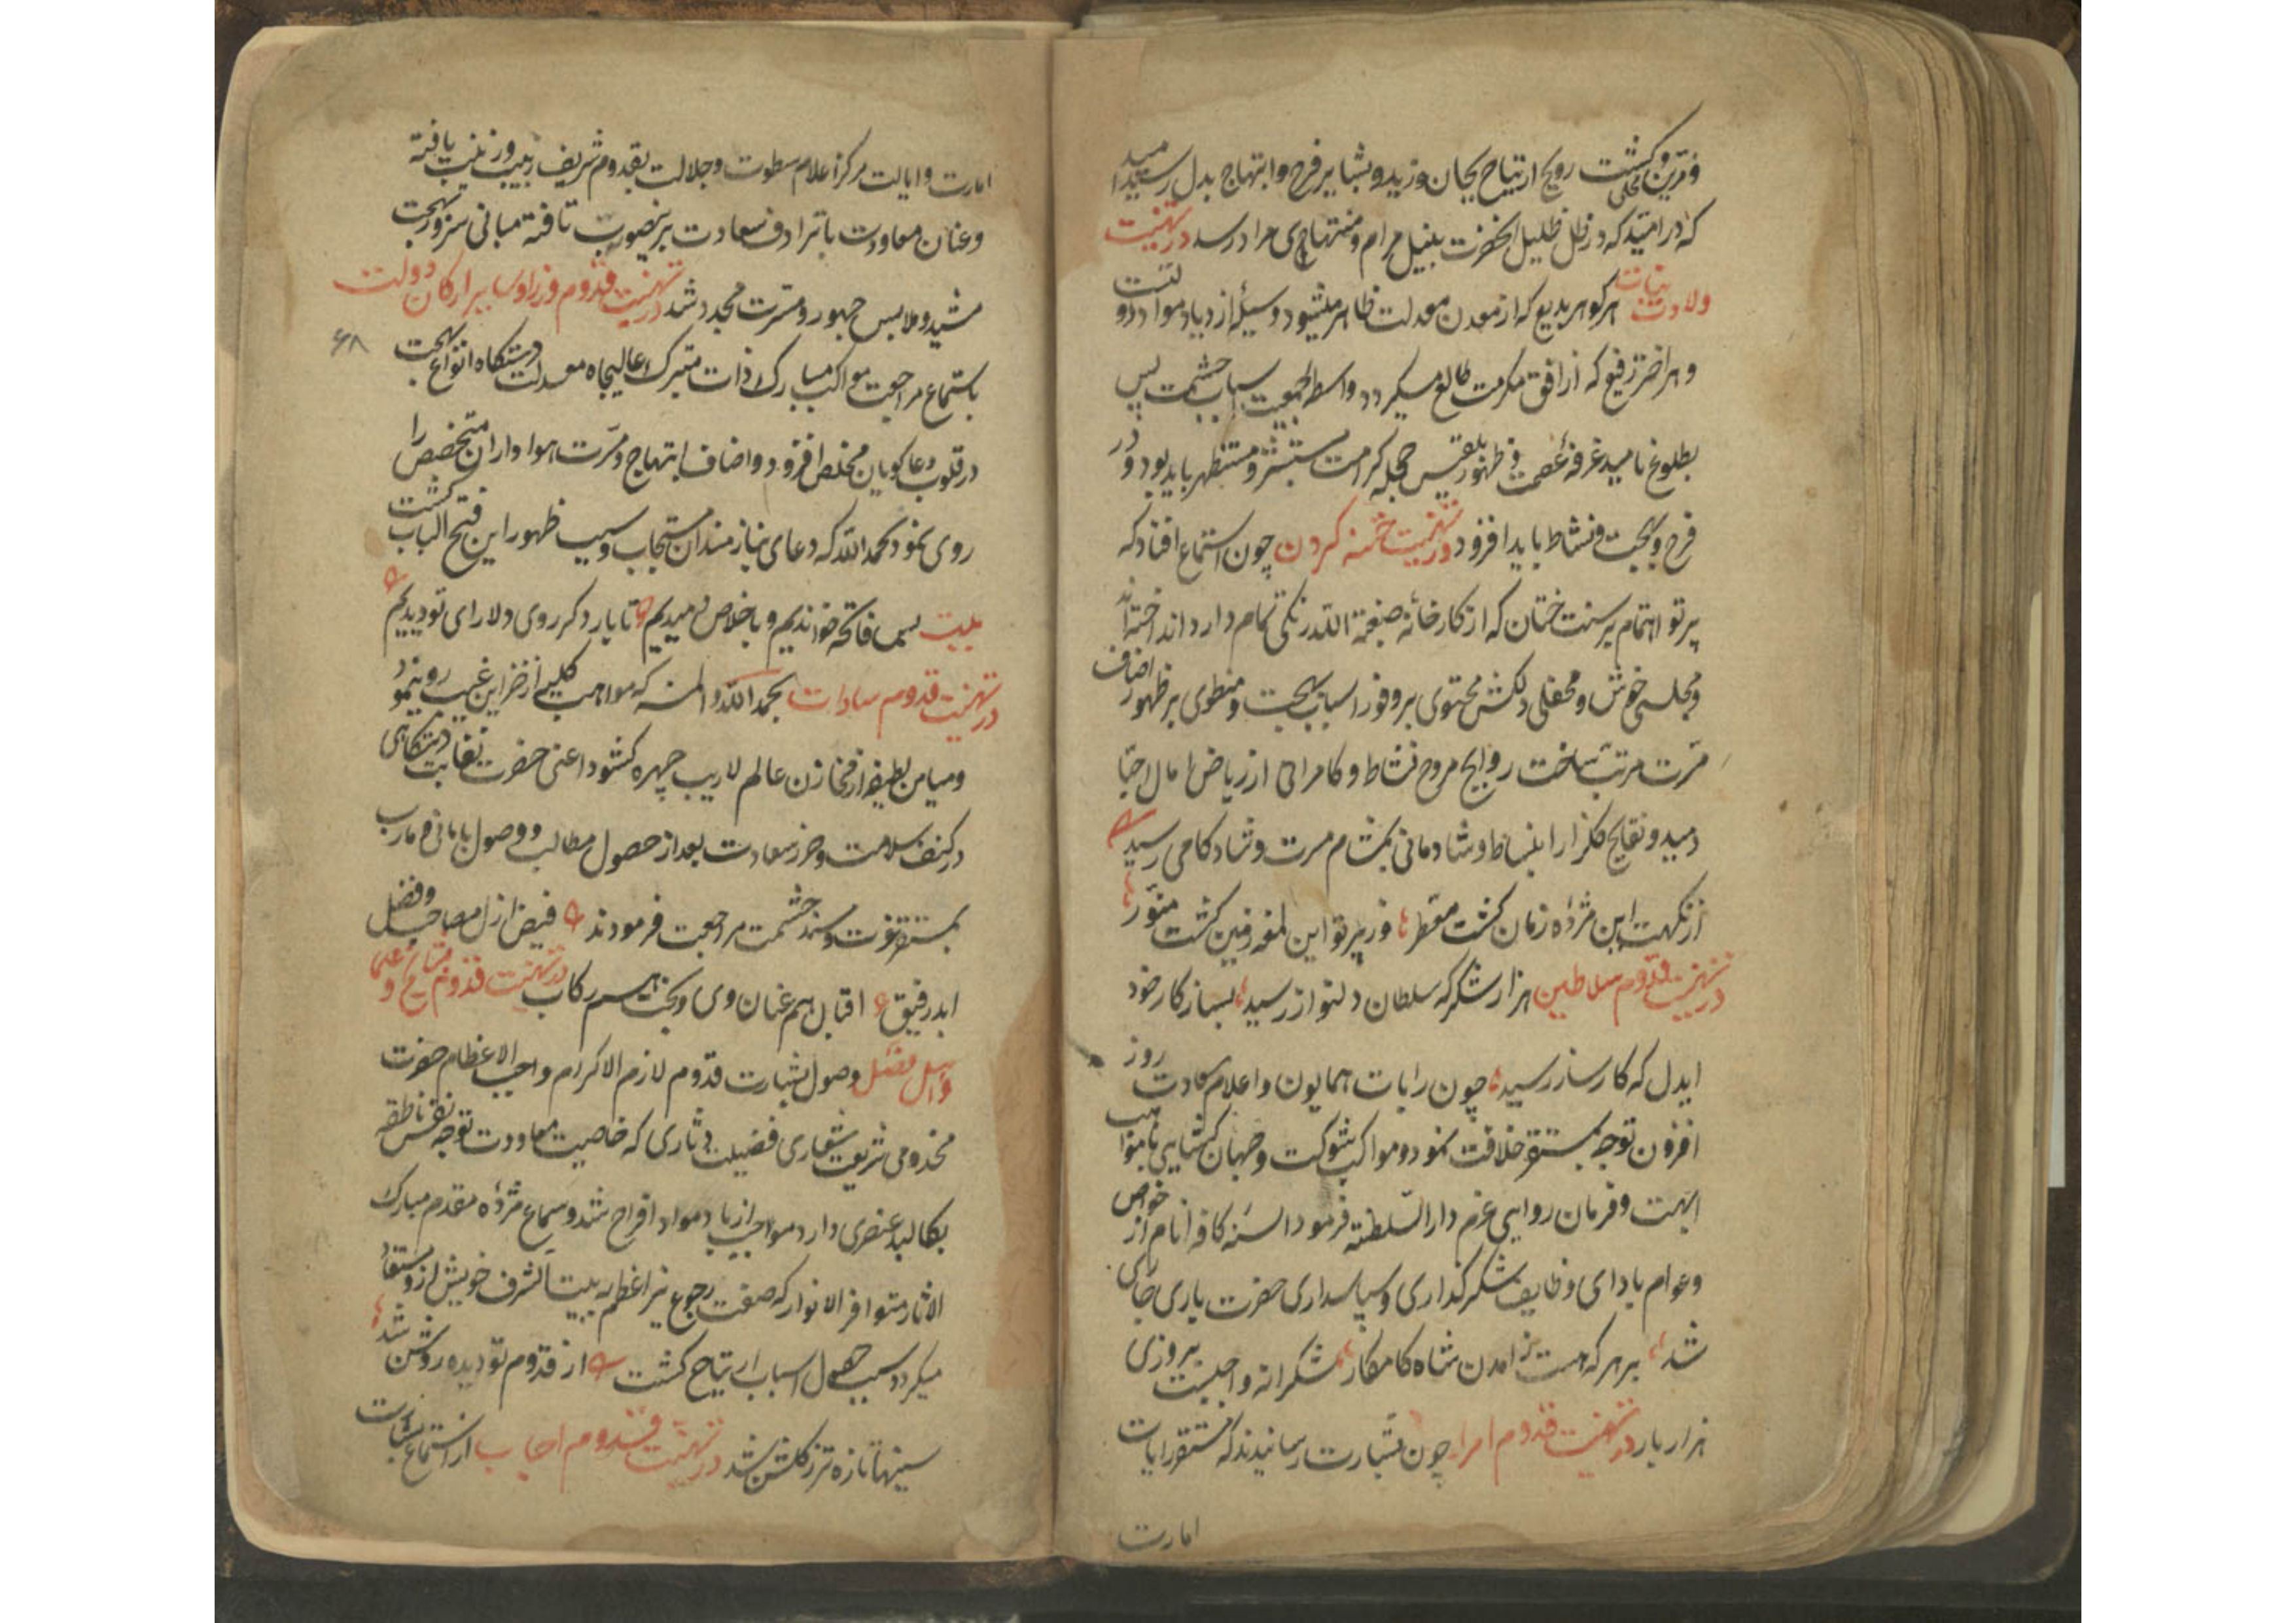 ومزین و محلی گشت روایح ارتیاح بجان وزید و بشایر فرح و ابتهاج بدل رسید امید
که در ظل ظلیل آنحضرت بنیل مرام و منتهای مراد رسد در تهنیت
ولادت بنات هر گوهر بدیع که از معدن معدلت ظاهر میشود وسیلهٔ ازدیاد مواد دولتست
و هر اختر رفیع که از افق مکرمت طالع میگردد واسطهٔ جمعیت اسباب حشمت پس
بطلوع ناهید غرفهٔ عصمت و ظهور بلقیس حجلهٔ کرامت مستبشر و مستظهر باید بود و در
فرح و بهجت و نشاط باید افزود در تهنیت ختنه کردن چون استماع افتاد که
پرتو اهتمام بر سنت ختان که از کارخانهٔ صبغة الله رنگی تمام دارد انداخته‌اند
و مجلسی خوش و محفلی دلکش محتوی بر وفور اسباب بهجت و منطوی بر ظهور اضاف
مسرت مرتب ساخت روایح مروح نشاط و کامرانی از ریاض امال احبا
دمید و نفایح گلزار انبساط و شادمانی بمشام مسرت و شادکامی رسید
از نکهت این مژده زمان گشت معطر وز پرتو این لمعه زمین گشت منور
در تهنیت قدوم سلاطین هزار شکر که سلطان دلنواز رسید بساز کار خود
ایدل که کارساز رسید چون رایات همایون و اعلام سعادت روز
افزون توجه بمستقر خلافت نمود و مواکب شوکت و جهان گشایی بامواهب
ابهت و فرمان روایی عزم دار السلطنه فرمود السنهٔ کافهٔ انام از خواص
و عوام بادای وظایف شکرگذاری و سپاسداری حضرت باری جاری
شد بر هر که هست ز امدن شاه کامکار شکرانه واجبست بروزی
هزار بار در تهنیت قدوم امرا چون بشارت رسانیدند که مستقر رایات
امارت
امارت و ایالت مرکز اعلام سطوت و جلالت بقدوم شریف زیب و زینت یافته
و عنان معاودت باترادف سعادت برینصوب تافته مبانی سرور و بهجت
مشید و ملابس حبور و مسرت مجدد شد در تهنیت قدوم وزرا و سایر ارکان دولت
۶۸
باستماع مراجعت مواکب مبارک ذات متبرک عالیجاه معدلت دستگاه انواع بهجت
در قلوب دعاگویان مخلص افزود و اضاف ابتهاج و مسرت هواداران متخصص را
روی نمود بحمد الله که دعای نیازمندان مستجاب و سبب ظهور این فتح الباب گشت
بیت بسا فاتحه خواندیم و باخلاص دمیدیم تا بار دگر روی دلارای تو دیدیم
در تهنیت قدوم سادات بحمد الله و المنه که مواهب کلیه از خزاین غیب رو نمود
و میامن لطیفه از مخازن عالم لاریب چهره گشود اعنی حضرت نقابت دستگاهی
در کنف سلامت و حرز سعادت بعد از حصول مطالب و وصول بامانی و مارب
بمستقر عزت و مسند حشمت مراجعت فرمودند فیض ازل مصاحب و فضل
ابد رفیق اقبال هم عنان وی و بخت همرکاب در تهنیت قدوم مشایخ و علما
و اهل فضل وصول بشارت قدوم لازم الاکرام و واجب الاعظام حضرت
مخدومی شریعت شعاری فضیلت دثاری که خاصیت معاودت توجه نفس ناطقه
بکالبد عنصری دارد مواجب ازدیاد مواد افراح شد و سماع مژده مقدم مبارک
الاثار متوافر الانوار که صفت رجوع نیر اعظم به بیت الشرف خویش ازو مستفاد
میگردد سبب حصول اسباب ارتیاح گشت از قدوم تو دیده روشن شد
سینها تازه تر ز گلشن شد در تهنیت قدوم احباب از استماع بشارت